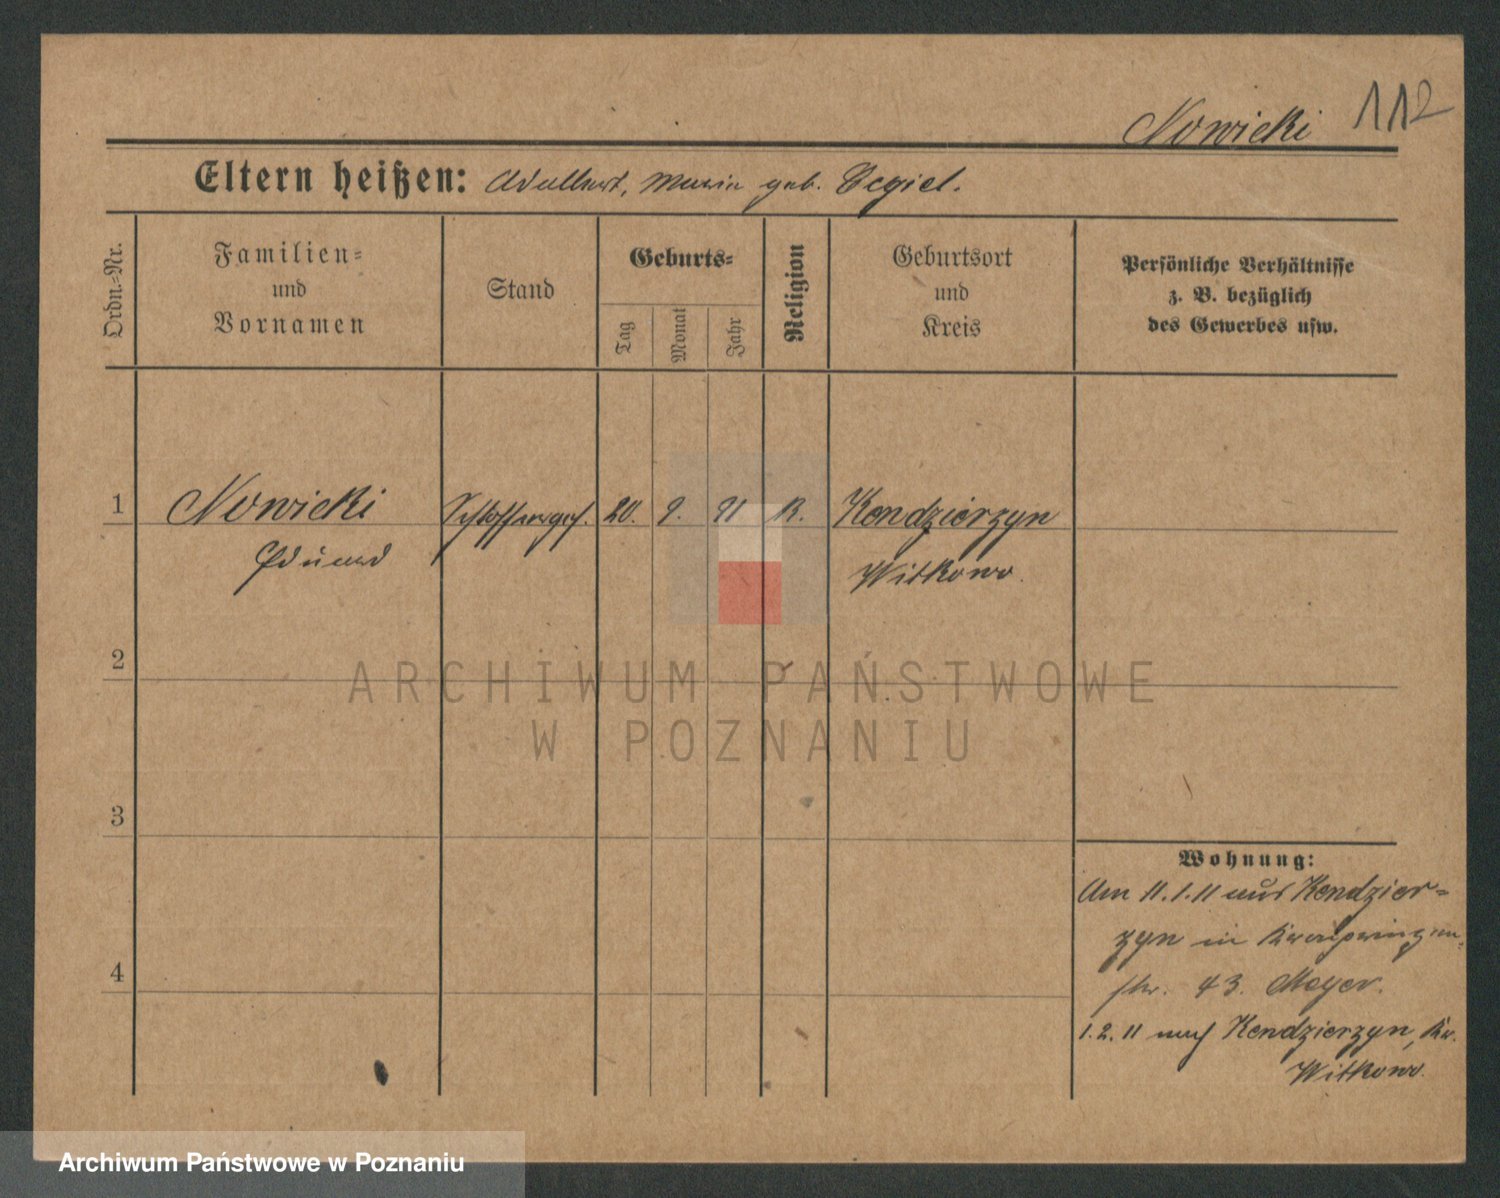 Nowicki 112
Eltern heißen: Adalbert, Maria geb. Cegiel.
Ordn.-Nr.
Familien-
und
Vornamen
Stand
Geburts-
Tag
Monat
Jahr
Religion
Geburtsort
und
Kreis
Persönliche Verhältnisse
z. B. bezüglich
des Gewerbes usw.
1 Nowicki Schlosserges. 20. 9. 91 K. Kendzierzyn
Eduard Witkowo.
2
3
4
Wohnung:
Am 11.1.11 aus Kendzier-
zyn in Kronprinzen-
str. 43. Meyer.
1.2.11 nach Kendzierzyn, Kr.
Witkowo.
ARCHIWUM PAŃSTWOWE
W POZNANIU
Archiwum Państwowe w Poznaniu